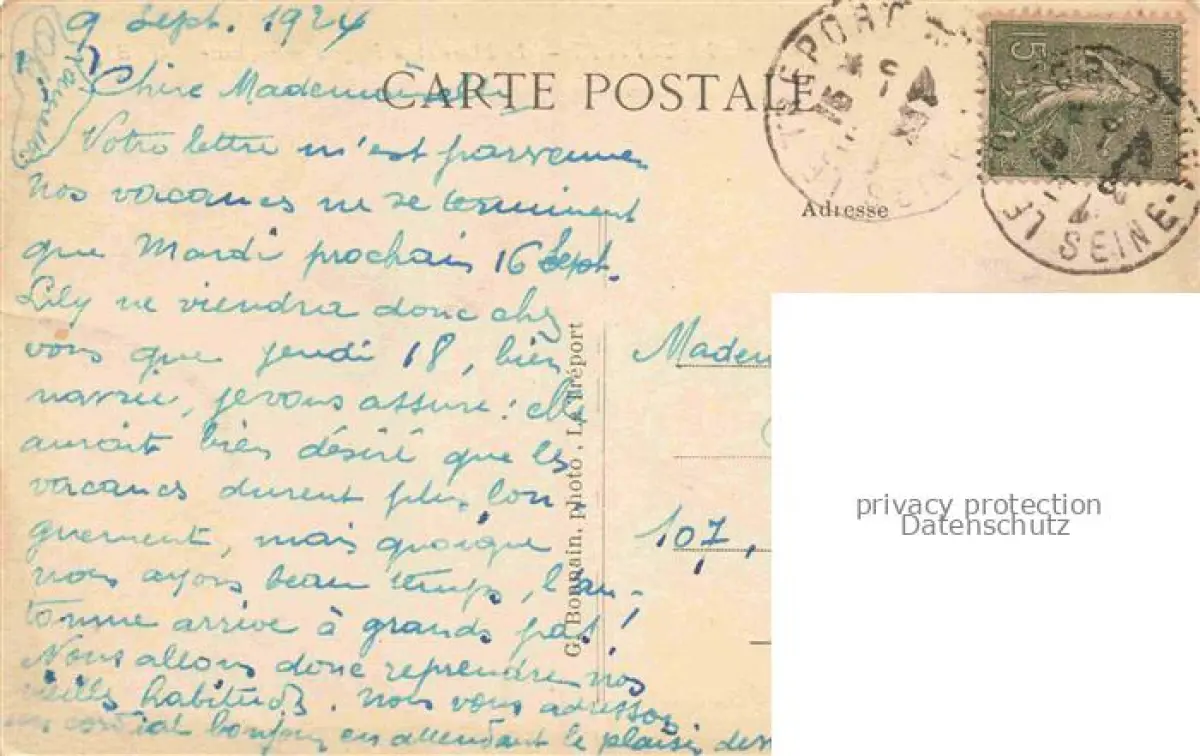 9 Sept. 1924
CARTE POSTALE
Chère Mademoiselle
Votre lettre m'est parvenue
Nos vacances ne se terminent
que Mardi prochain 16 Sept.
Lily ne viendra donc chez
vous que jeudi 18, bien
navrée, je vous assure : elle
aurait bien désiré que les
vacances durent plus lon
guement, mais quoique
nous ayons beau temps, l'au-
tomne arrive à grands pas !
Nous allons donc reprendre nos
vieilles habitudes. Nous vous adressons
un cordial bonjour en attendant le plaisir de
G. Bonnain, photo, Le Tréport
LE TREPORT
15
SEINE-
Adresse
Madem
107,
privacy protection
Datenschutz